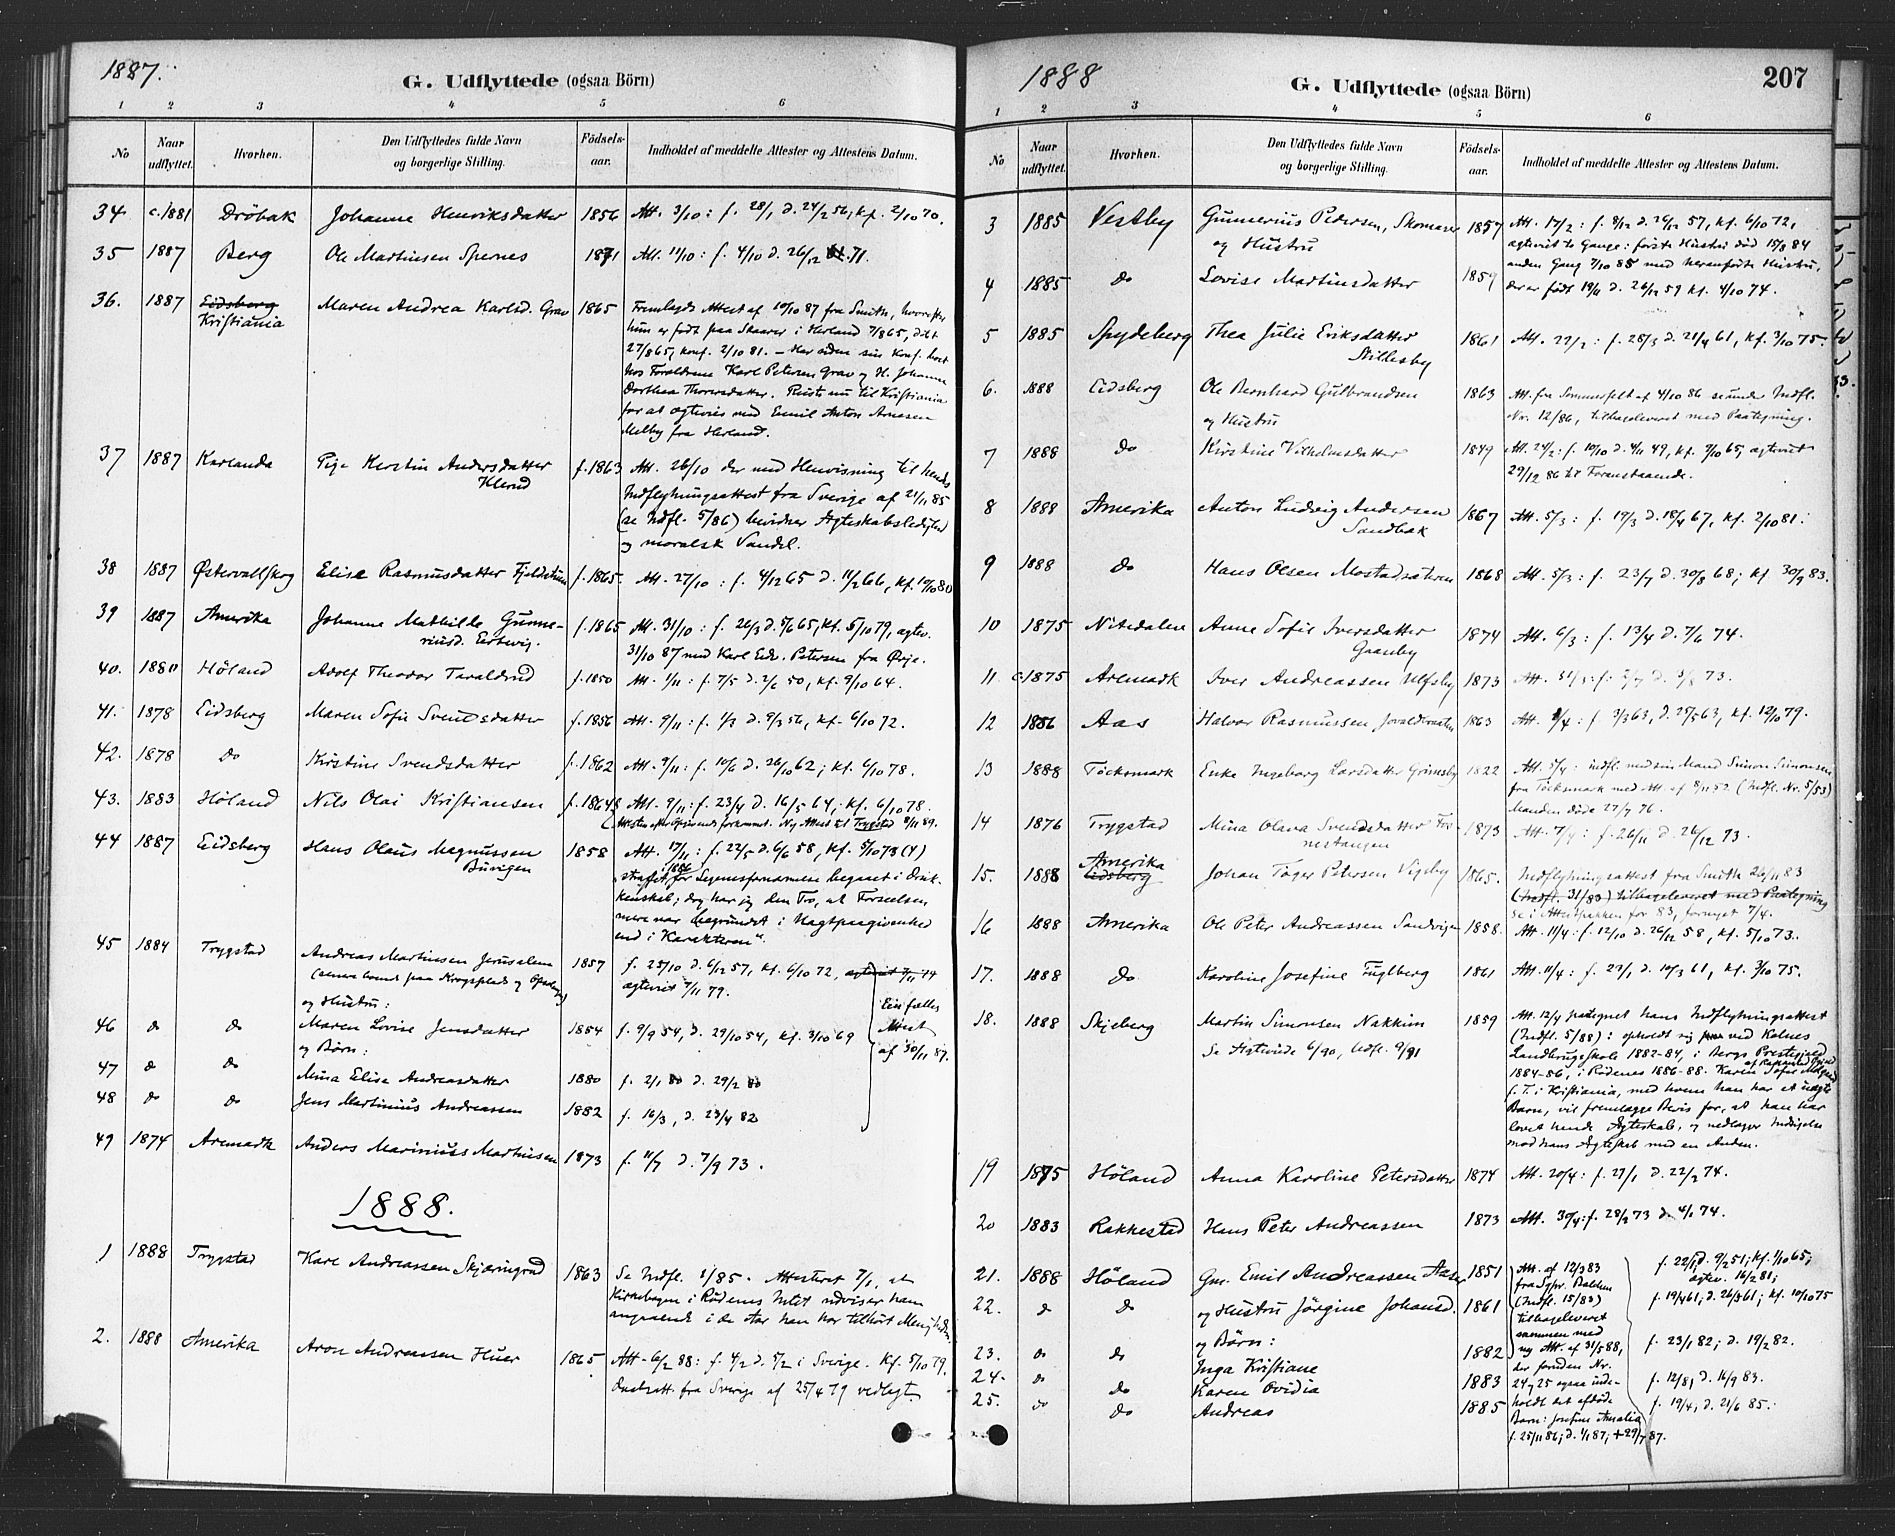 1887.
G. Udflyttede (ogsaa Börn)
1 2 3 4 5 6
No Naar udflyttet. Hvorhen. Den Udflyttedes fulde Navn og borgerlige Stilling. Födsels-aar. Indholdet af meddelte Attester og Attestens Datum.
34. c.1881 Dröbak Johanne Henriksdatter 1856 Att. 3/10: f. 28/1 d. 24/2 56, kf. 2/10 70.
35 1887 Berg Ole Martinsen Spernes 1871 Att. 11/10: f. 4/10 d. 26/12 71.
36. 1887 Eidsberg Maren Andrea Karlsd. Grav 1865 Fremlagde Attest af 10/10 87 fra Smith, hvorefter
Kristiania hun er födt paa Skaarer i Herland 7/8 65, döbt
27/8 65, konf. 2/10 81. – Har siden sin Konf. boet
hos Forældrene Karl Petersen Grav og H. Johanne
Dorthea Thorersdatter. Reiste nu til Kristiania
for at ægtevies med Emil Anton Arnesen
Melby fra Herland.
37 1887 Karlanda Pige Kerstin Andersdatter f. 1863 Att. 26/10 der med Henvisning til hendes
Klerud Indflytningsattest fra Sverige af 21/11 85
(se Indfl. 5/86) bevidner Ægteskabsledighed
og moralsk Vandel.
38 1887 Østervallskog Elise Rasmusdatter Fjeldstuen f. 1865. Att. 27/10: f. 4/12 65 d. 11/2 66, kf. 10/10 80
39 1887 Amerika Johanne Mathilde Gunne- f. 1865 Att. 31/10: f. 26/3 d. 5/6 65, kf. 5/10 79, ægtev.
riusd. 31/10 87 med Karl Edv. Petersen fra Ørje.
40. 1880 Höland Adolf Theodor Taraldrud f. 1850 Att. 1/11: f. 7/5 d. 2/6 50, kf. 9/10 64.
41. 1878 Eidsberg Maren Sofie Svendsdatter f. 1856 Att. 9/11: f. 1/2 d. 9/3 56, kf. 6/10 72.
42. 1878 Do Kirstine Svendsdatter f. 1862 Att. 9/11: f. 10/6 d. 26/10 62; kf. 6/10 78.
43. 1883 Höland Nils Olai Kristiansen f. 1864 Att. 9/11: f. 23/4 d. 16/5 64, kf. 6/10 78.
forkommet. Ny Attest til Trygstad 8/11 89.
44 1887 Eidsberg Hans Olaus Magnussen 1858 Att. 17/11: f. 22/5 d. 6/6 58, kf. 5/10 73 (4)
Buvigen straffet 1886 for Legemsfornærmelse begaaet i Druk-
kenskab; dog har jeg den Tro, at Forseelsen
mere var begrundet i Nagtpaagivenhed
end i Karakteren".
45 1884 Trygstad Andreas Martinsen Jerusalem 1857 f. 25/10 d. 6/12 57, kf. 6/10 72, ægteviet 7/11 74
(senere boende paa Krogsplads og ægteviet 7/11 79.
og Hustru: Een fælles
46 do do Maren Lovise Jensdatter 1854 f. 9/9 54, d. 29/10 54, kf. 3/10 69 Attest
og Börn: af 30/11 87.
47 do do Mina Elise Andreasdatter 1880 f. 2/1 80 d. 29/2 80
48 do do Jens Martinius Andreassen 1882 f. 16/3, d. 23/4 82
49 1874 Aremark Anders Marinius Martinsen 1873 f. 11/7 d. 7/9 73.
1888.
1 1888 Trygstad Karl Andreassen Skjæringrud 1863 Se Indfl. 1/85. Attesteret 7/1, at
Kirkebogen i Rödenes Intet udviser ham
angaaende i de Aar han har tilhört Menigheden.
2. 1888 Amerika Aron Andreassen Huer 1865 Att. 6/2 88: f. 4/2 d. 5/2 i Sverige. Kf. 5/10 79.
fra Sverige af 25/4 79 vedlagt.
1888
G. Udflyttede (ogsaa Börn)
207
1 2 3 4 5 6
No Naar udflyttet. Hvorhen. Den Udflyttedes fulde Navn og borgerlige Stilling. Födsels-aar. Indholdet af meddelte Attester og Attestens Datum.
3 1885 Vestby Gunnerius Pedersen, Skomager 1857 Att. 17/2: f. 8/12 d. 26/12 57, kf. 6/10 72,
og Hustru ægteviet to Gange: förste Hustru död 15/8 84
anden Gang 7/10 85 med heranförte Hustru,
4 1885 do Lovise Martinsdatter 1859 der er födt 19/11 d. 26/12 59 kf. 4/10 74.
5 1885 Spydeberg Thea Julie Eriksdatter 1861 Att. 22/2: f. 28/3 d. 21/4 61, kf. 3/10 75.
Stillesby
6. 1888 Eidsberg Ole Bernhard Gulbrandsen 1863 Att. fra Sommerfelt af 4/10 86 se under Indfl.
og Hustru Nr. 12/86, tilbageleveret med Paategning.
7 1888 do Kirstine Vilhelmsdatter 1849 Att. 24/2: f. 10/10 d. 4/11 49, kf. 7/10 65, ægteviet
29/12 86 til Foranstaaende.
8 1888 Amerika Anton Ludvig Andersen 1867 Att. 5/3: f. 19/3 d. 18/4 67, kf. 2/10 81.
Sandbak
9 1888 Do Hans Olsen Mostadsæteren 1868 Att. 5/3: f. 23/7 d. 30/8 68; kf 30/9 83.
10 1875 Nitedalen Anne Sofie Iversdatter 1874 Att. 6/3: f. 13/4 d. 7/6 74.
Graneby
11 c.1875 Aremark Iver Andreassen Ulfsby 1873 Att. 31/3: f. d. 73.
12 1886 Aas Halvor Rasmussen 1863 Att. 4/4: f. 3/3 63, d. 25/5 63, kf. 12/10 79.
13 1888 Töcksmark Enke Ingeborg Larsdatter Grimsby 1822 Att. 5/4: indfl. med sin Mand Simon Simonsen
fra Töcksmark med Att. af 8/11 52 (Indfl. Nr. 5/53)
Manden döde 27/7 76.
14 1876 Trygstad Mina Olava Svendsdatter For- 1873 Att. 7/4: f. 26/11 d. 26/12 73.
nestangen
15. 1888 Amerika Johan Töger Petersen Vigeby 1865. Indflytningsattest fra Smith 26/11 83
Eidsberg (Indfl. 31/83) tilbageleveret med Paategning
se i Attestpakken for 83, fornyet 7/4.
16 1888 Amerika Ole Peter Andreassen Sandvigen 1858. Att. 11/4: f. 12/10 d. 26/12 58, kf. 5/10 73.
17. 1888 Do Karoline Josefine Fuglberg 1861 Att. 11/4: f. 22/1 d. 10/3 61, kf. 3/10 75.
18. 1888 Skjeberg Martin Simonsen Nakkim 1859 Att. 12/4 paategnet hans Indflytningsattest
Se Tilstunde 6/90, Indfl. 9/91 (Indfl. 5/88): opholdt sig ved Kalnes
Landbrugsskole 1882-84, i Bergs Prestegjeld
1884-86, i Rödenes 1886-88. Karen Sofie
f. T. i Kristiania, med hvem han har et uægte
Barn, vil fremlægge Bevis for, at han har
lovet hende Ægteskab, og nedlægger Indsigelse
mod hans Ægteskab med en Anden.
19 1875 Höland Anna Karoline Petersdatter 1874 Att. 20/4: f. 27/1 d. 22/2 74.
20 1883 Rakkestad Hans Peter Andreassen 1873 Att. 30/4: f. 28/2 73 d. 4/1 74.
21. 1888 Höland Gm. Emil Andreassen Aaser 1851 Att. af 12/3 83 f. 22/1, d. 9/2 51; kf. 1/10 65;
fra Sgpr. Balchen ægtev. 16/2 81;
22. do do og Hustru Jörgine Johansd. 1861 (Indfl. 15/83) f. 19/4 61, d. 26/5 61; kf. 10/10 75
og Börn: tilbageleveret
sammen med
23. do do Inga Kristiane 1882 ny Att. af 31/5 88, f. 23/1 82; d. 19/2 82.
der foruden Nr.
24. do do Karen Ovidia 1883 24 og 25 ogsaa inde- f. 12/8, d. 16/9 83.
25. do do Andreas 1885 holdt det afdöde f. 19/4, d. 21/6 85.
Barn: Josefine Amalia
f. 25/11 86; d. 1/1 87; + 29/7 87.